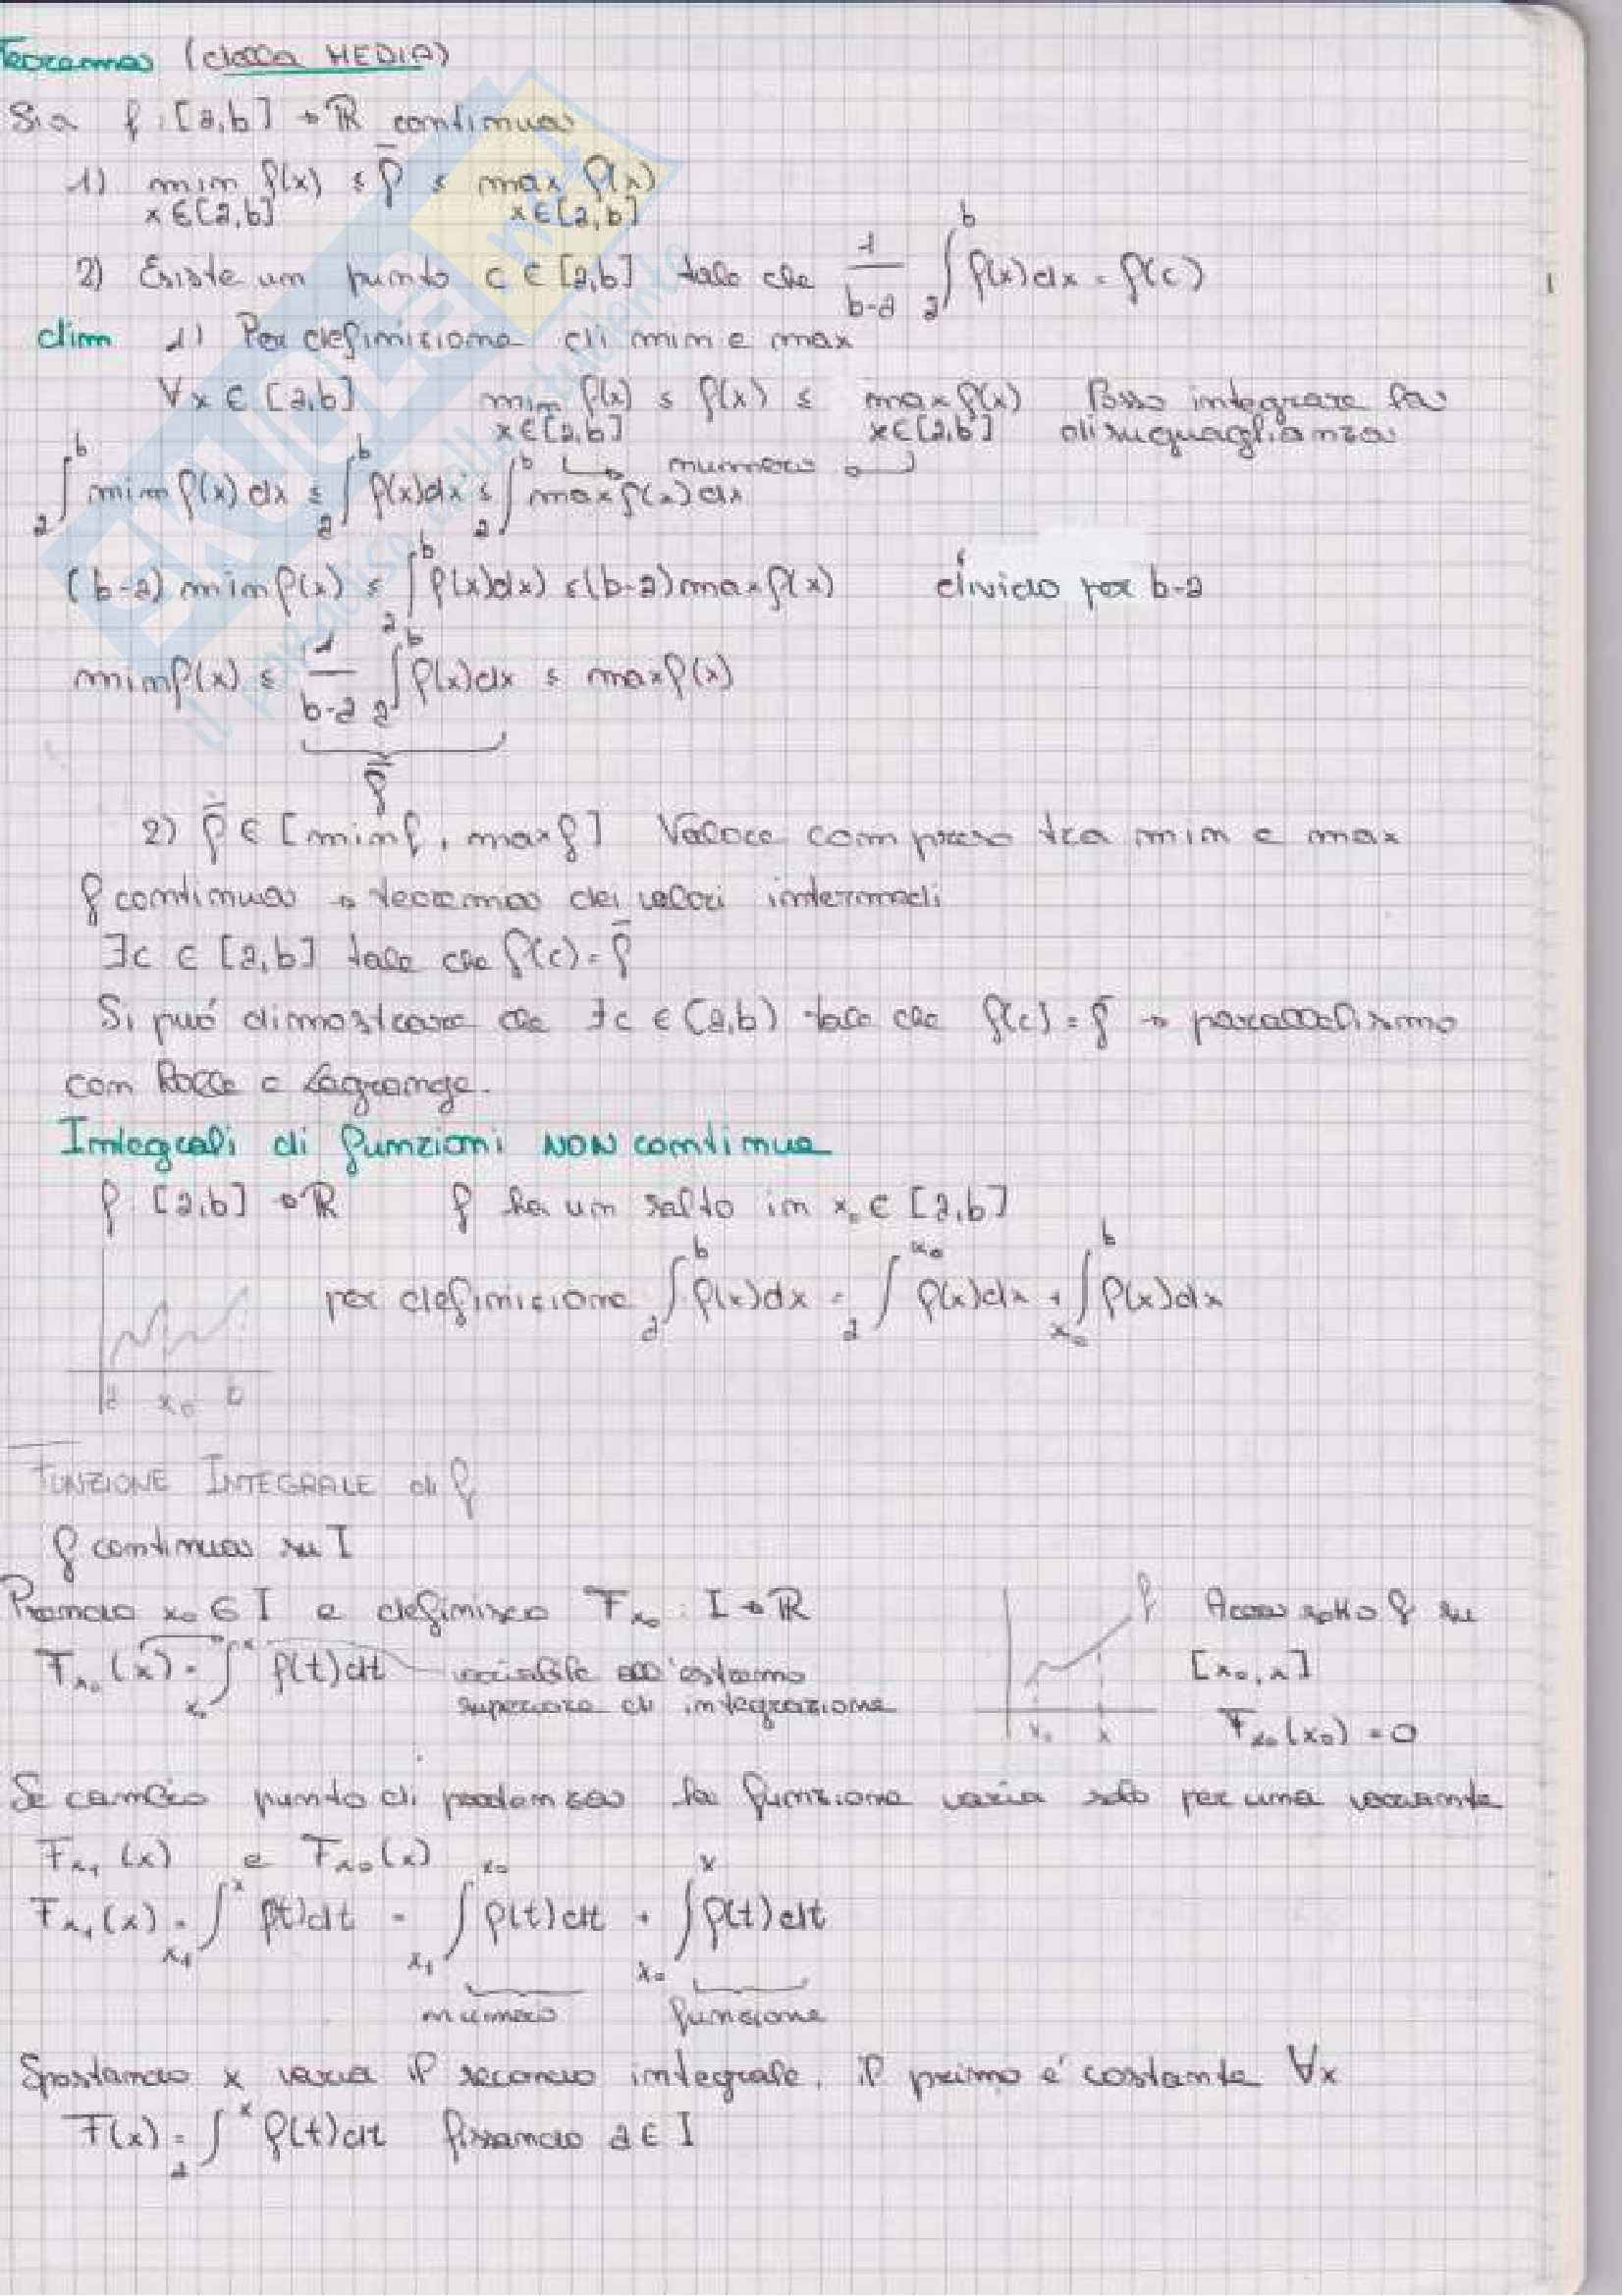 Teorema (della MEDIA)
Sia f: [a,b] → ℝ continua
1) min f(x) ≤ f̄ ≤ max f(x)
x∈[a,b] x∈[a,b]
2) Esiste un punto c ∈ [a,b] tale che 1/(b-a) ∫_a^b f(x)dx = f(c)
dim 1) Per definizione di min e max
∀x ∈ [a,b] min f(x) ≤ f(x) ≤ max f(x) Posso integrare la
x∈[a,b] x∈[a,b] disuguaglianza
numero
∫_a^b min f(x) dx ≤ ∫_a^b f(x)dx ≤ ∫_a^b max f(x) dx
(b-a) min f(x) ≤ ∫_a^b f(x)dx) ≤ (b-a) max f(x) divido per b-a
min f(x) ≤ 1/(b-a) ∫_a^b f(x)dx ≤ max f(x)
f̄
2) f̄ ∈ [min f, max f] Valore compreso tra min e max
f continua → teorema dei valori intermedi
∃c ∈ [a,b] tale che f(c) = f̄
Si può dimostrare che ∃c ∈ (a,b) tale che f(c) = f̄ → parallelismo
con Rolle e Lagrange.
Integrali di funzioni NON continue
f: [a,b] → ℝ f ha un salto in x₀ ∈ [a,b]
per definizione ∫_a^b f(x)dx = ∫_a^x₀ f(x)dx + ∫_x₀^b f(x)dx
a x₀ b
FUNZIONE INTEGRALE di f
f continua su I
Prendo x₀ ∈ I e definisco F_x₀: I → ℝ
F_x₀(x) = ∫_x₀^x f(t)dt variabile all'estremo
superiore di integrazione
f Area sotto f su
[x₀,x]
x₀ x
F_x₀(x₀) = 0
Se cambio punto di partenza la funzione varia solo per una costante
F_x₁(x) e F_x₀(x)
F_x₁(x) = ∫_x₁^x f(t)dt = ∫_x₁^x₀ f(t)dt + ∫_x₀^x f(t)dt
numero funzione
Spostando x varia il secondo integrale, il primo è costante ∀x
F(x) = ∫_a^x f(t)dt fissando a ∈ I